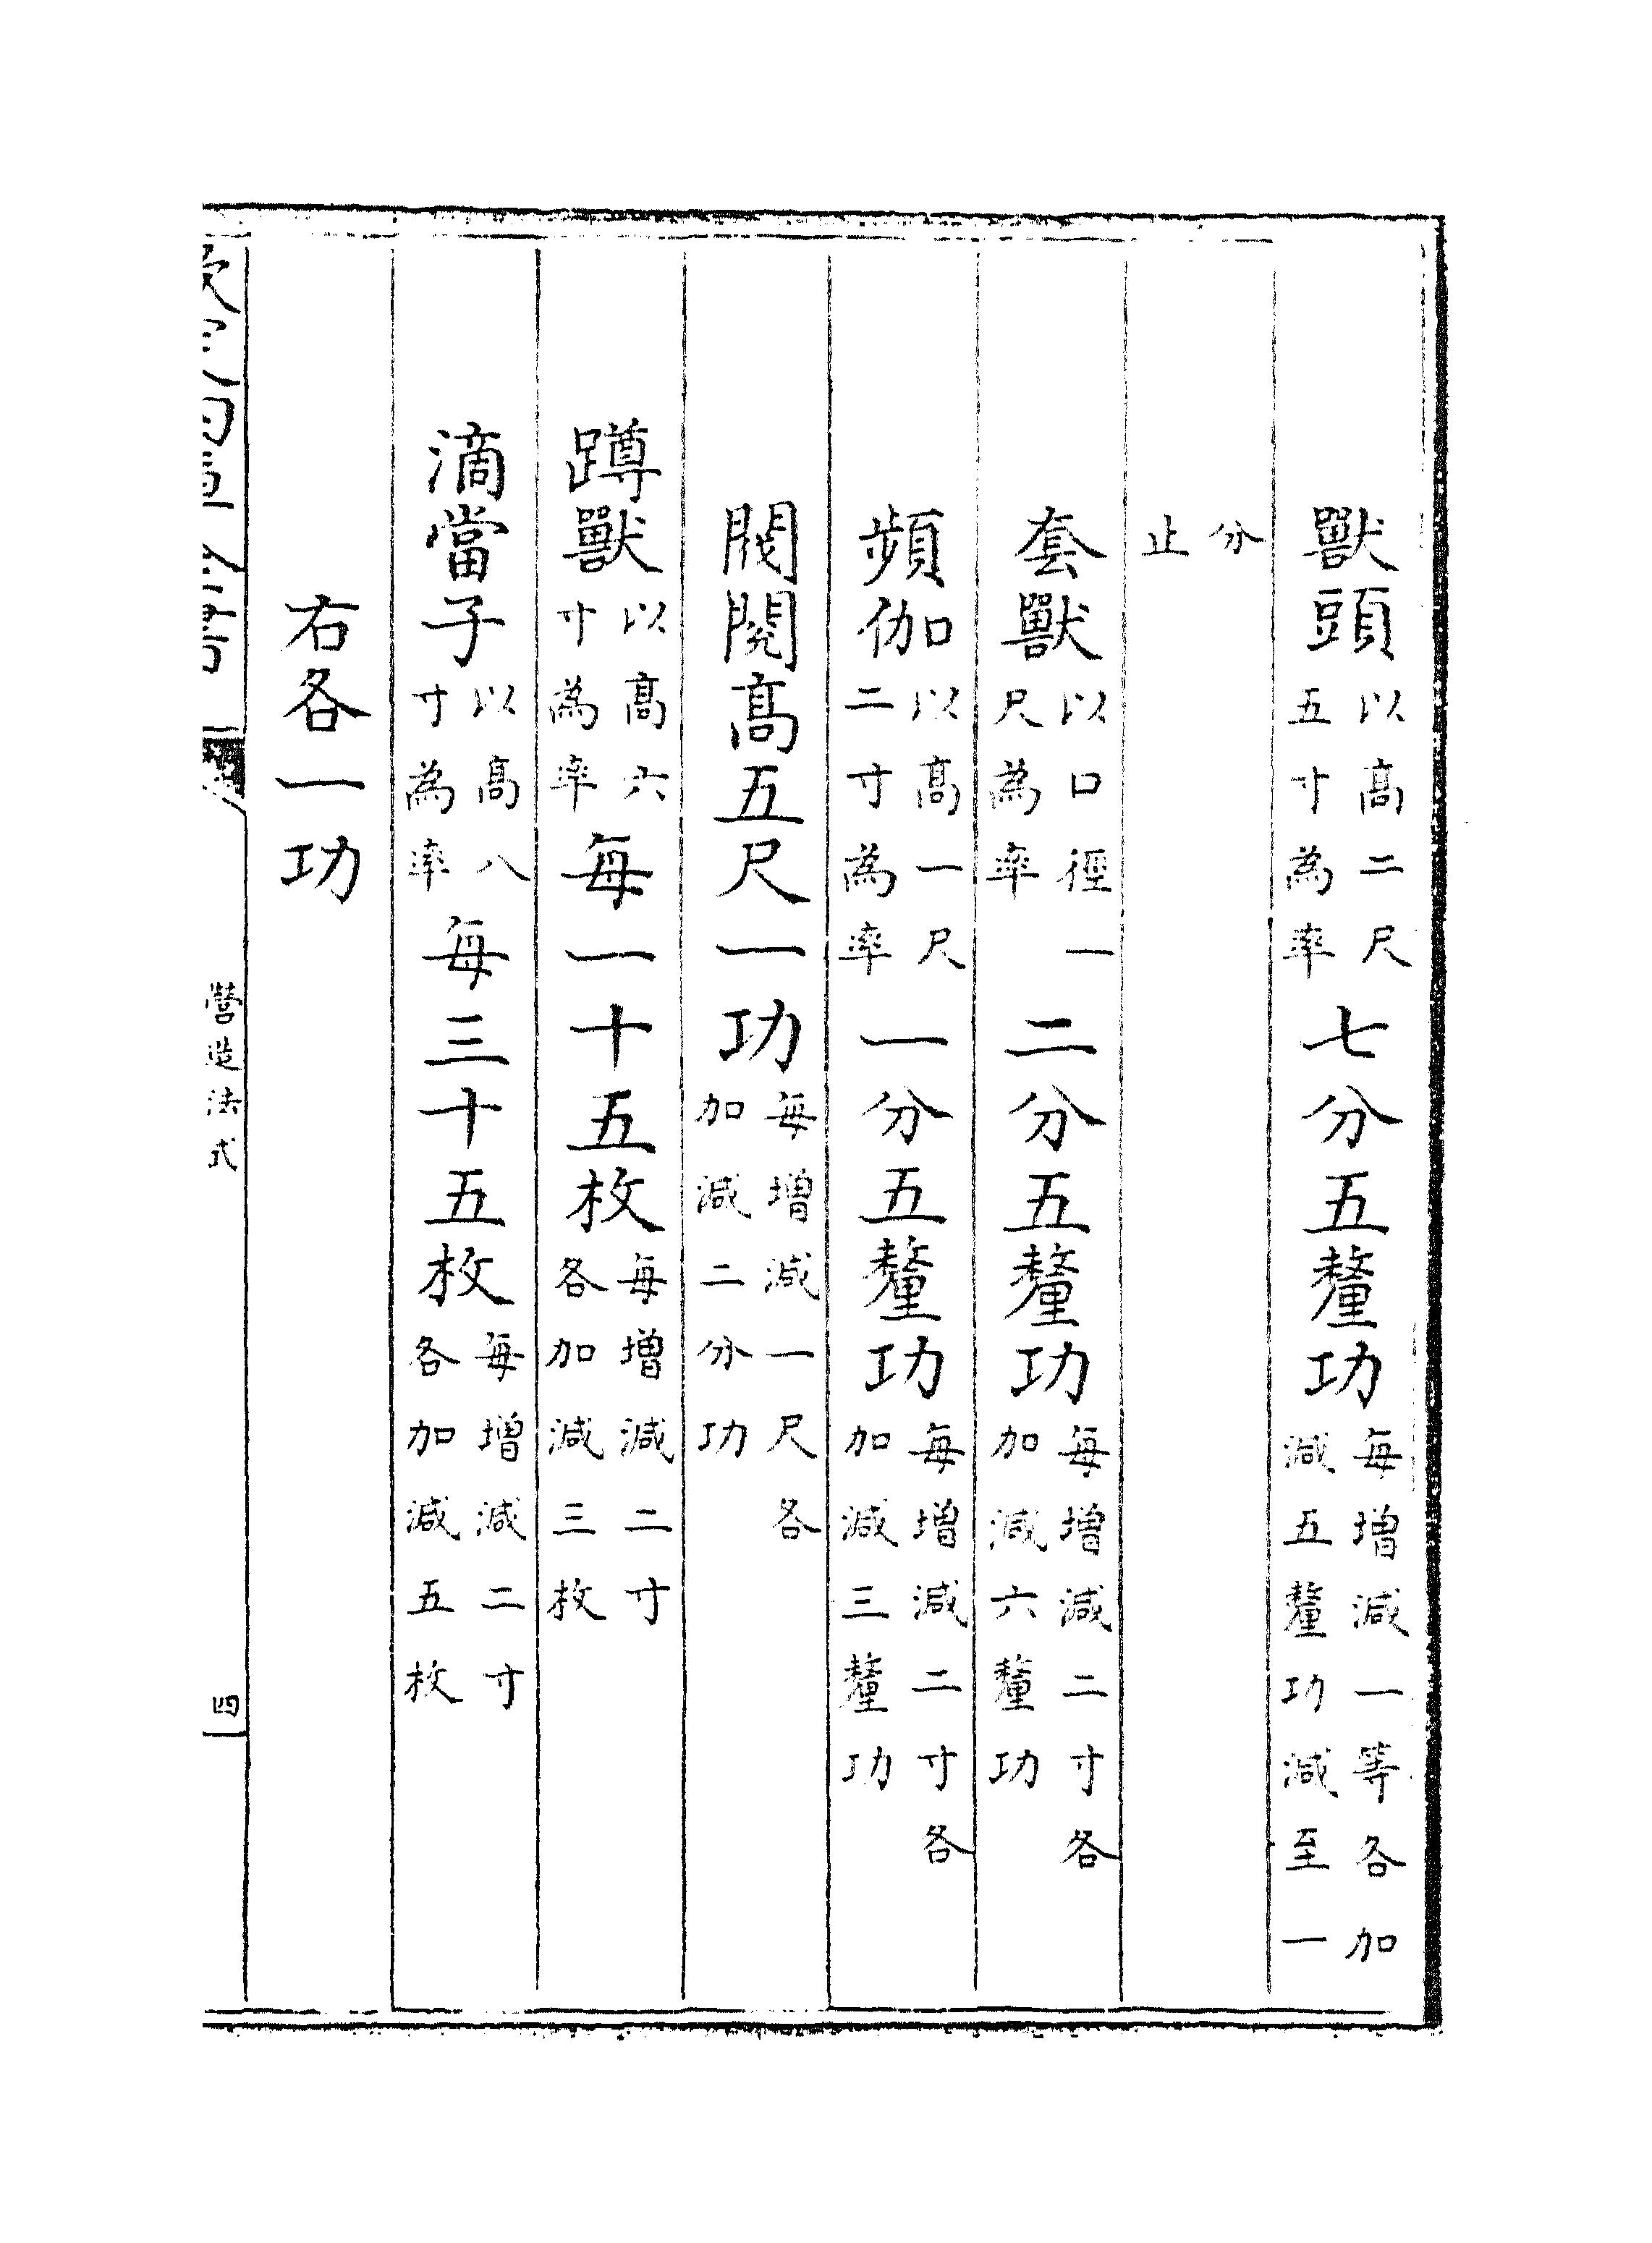 獸頭以高二尺五寸為率七分五釐功每增減一等各加減五釐功減至一
分止
套獸以口徑一尺為率二分五釐功每增減二寸各加減六釐功
頻伽以高一尺二寸為率一分五釐功每增減二寸各加減三釐功
閥閱高五尺一功每增減一尺各加減二分功
蹲獸以高六寸為率每一十五枚每增減二寸各加減三枚
滴當子以高八寸為率每三十五枚每增減二寸各加減五枚
右各一功
營造法式
四